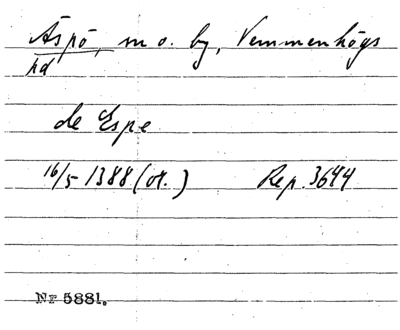 Äspö, sn o. by, Vemmenhögs
hd
de Espe
16/5 1388 (or.) Rep. 3644
Nr 5881.